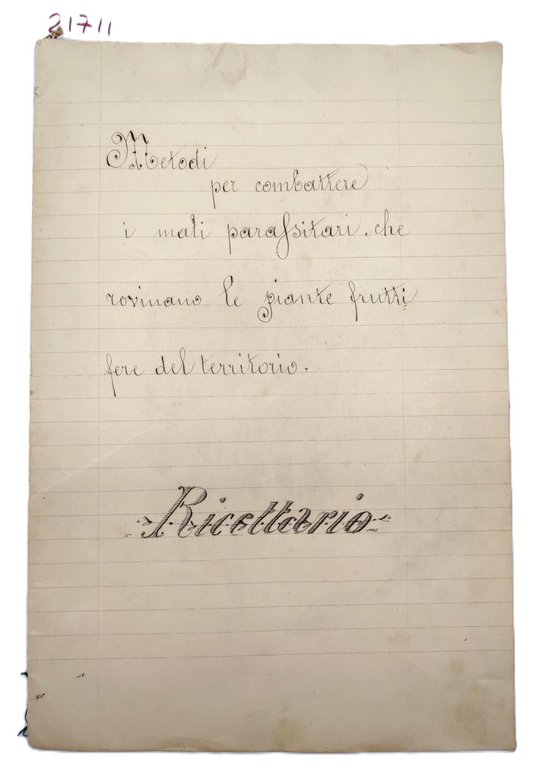 21711
Metodi
per combattere
i mali parassitari, che
rovinano le piante frutti
fere del territorio.
Ricettario